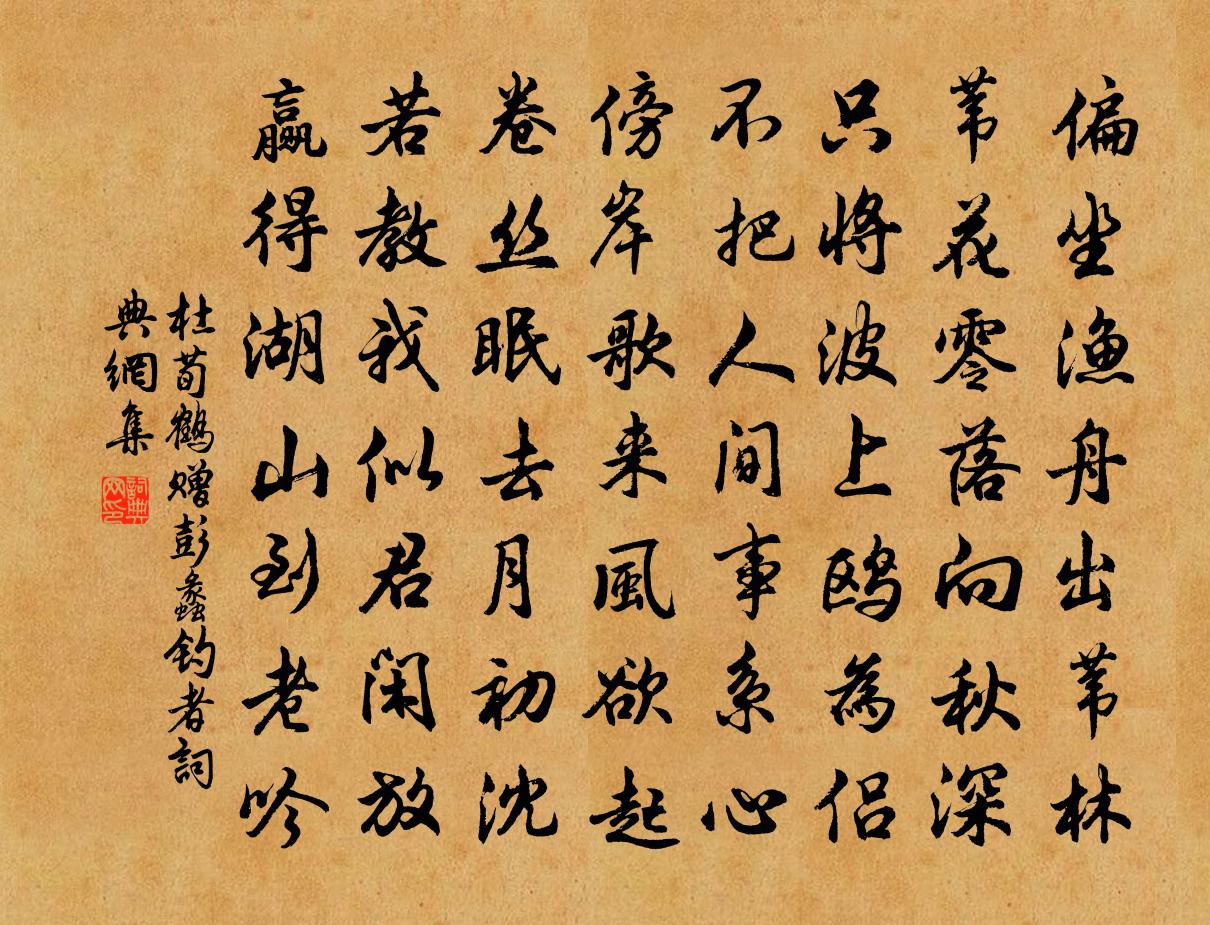 偏坐渔舟出苇林
苇花零落向秋深
只将波上鸥為侣
不把人间事系心
傍岸歌来風欲起
卷丝眠去月初沈
若教我似君闲放
赢得湖山到老吟
杜荀鶴赠彭蠡钓者詞
典網集
詞典网印